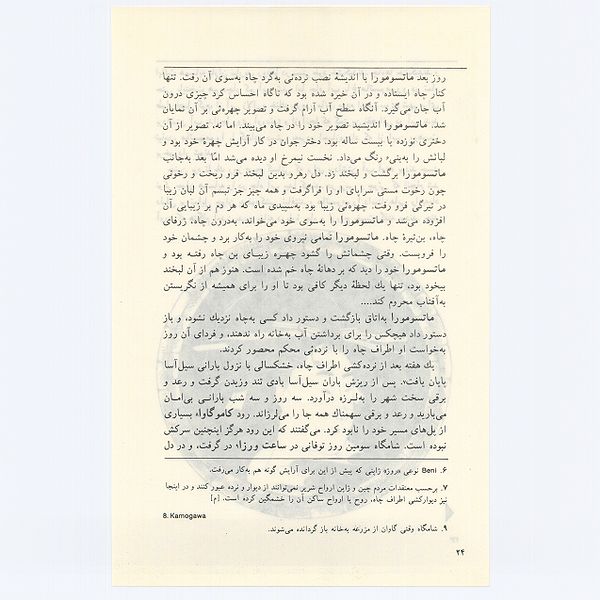 روز بعد ماتسومورا با اندیشهٔ نصب نرده‌ئی به‌گرد چاه به‌سوی آن رفت. تنها
کنار چاه ایستاده و در آن خیره شده بود که ناگاه احساس کرد چیزی درون
آب جان می‌گیرد. آنگاه سطح آب آرام گرفت و تصویر چهره‌ئی بر آن نمایان
شد. ماتسومورا اندیشید تصویر خود را در چاه می‌بیند. اما نه، تصویر از آن
دختری نوزده یا بیست ساله بود. دختر جوان در کار آرایش چهرهٔ خود بود و
لبانش را به‌بنی۶ رنگ می‌داد. نخست نیمرخ او دیده می‌شد امّا بعد به‌جانب
ماتسومورا برگشت و لبخند زد. دل رهرو بدین لبخند فرو ریخت و رخوتی
چون رخوت مستی سراپای او را فراگرفت و همه چیز جز تبسم آن لبان زیبا
در تیرگی فرو رفت. چهره‌ئی زیبا بود به‌سپیدی ماه که هر دم بر زیبایی آن
افزوده می‌شد و ماتسومورا را به‌سوی خود می‌خواند، به‌درون چاه، ژرفای
چاه، بن‌تیرهٔ چاه. ماتسومورا تمامی نیروی خود را به‌کار برد و چشمان خود
را فروبست. وقتی چشمانش را گشود چهره زیبای بن چاه رفته بود و
ماتسومورا خود را دید که بر دهانهٔ چاه خم شده است. هنوز هم از آن لبخند
بیخود بود، تنها یك لحظهٔ دیگر کافی بود تا او را برای همیشه از نگریستن
به‌آفتاب محروم کند....
ماتسومورا به‌اتاق بازگشت و دستور داد کسی به‌چاه نزدیك نشود، و باز
دستور داد هیچکس را برای برداشتن آب به‌خانه راه ندهند، و فردای آن روز
به‌خواست او اطراف چاه را با نرده‌ئی محکم محصور کردند.
یك هفته بعد از نرده‌کشی اطراف چاه، خشکسالی با نزول بارانی سیل‌آسا
پایان یافت۷. پس از ریزش باران سیل‌آسا بادی تند وزیدن گرفت و رعد و
برقی سخت شهر را به‌لرزه درآورد. سه روز و سه شب بارانی بی‌امان
می‌بارید و رعد و برقی سهمناك همه جا را می‌لرزاند. رود کاموگاوا۸ بسیاری
از پل‌های مسیر خود را نابود کرد. می‌گفتند که این رود هرگز اینچنین سرکش
نبوده است. شامگاه سومین روز توفانی در ساعت ورزا۹ در گرفت، و در دل
۶. Beni نوعی «روژ» ژاپنی که پیش از این برای آرایش گونه هم به‌کار می‌رفت.
۷. برحسب معتقدات مردم چین و ژاپن ارواح شریر نمی‌توانند از دیوار و نرده عبور کنند و در اینجا
نیز دیوارکشی اطراف چاه، روح یا ارواح ساکن آن را خشمگین کرده است. [م]
8. Kamogawa
۹. شامگاه وقتی گاوان از مزرعه به‌خانه باز گردانده می‌شوند.
۲۴